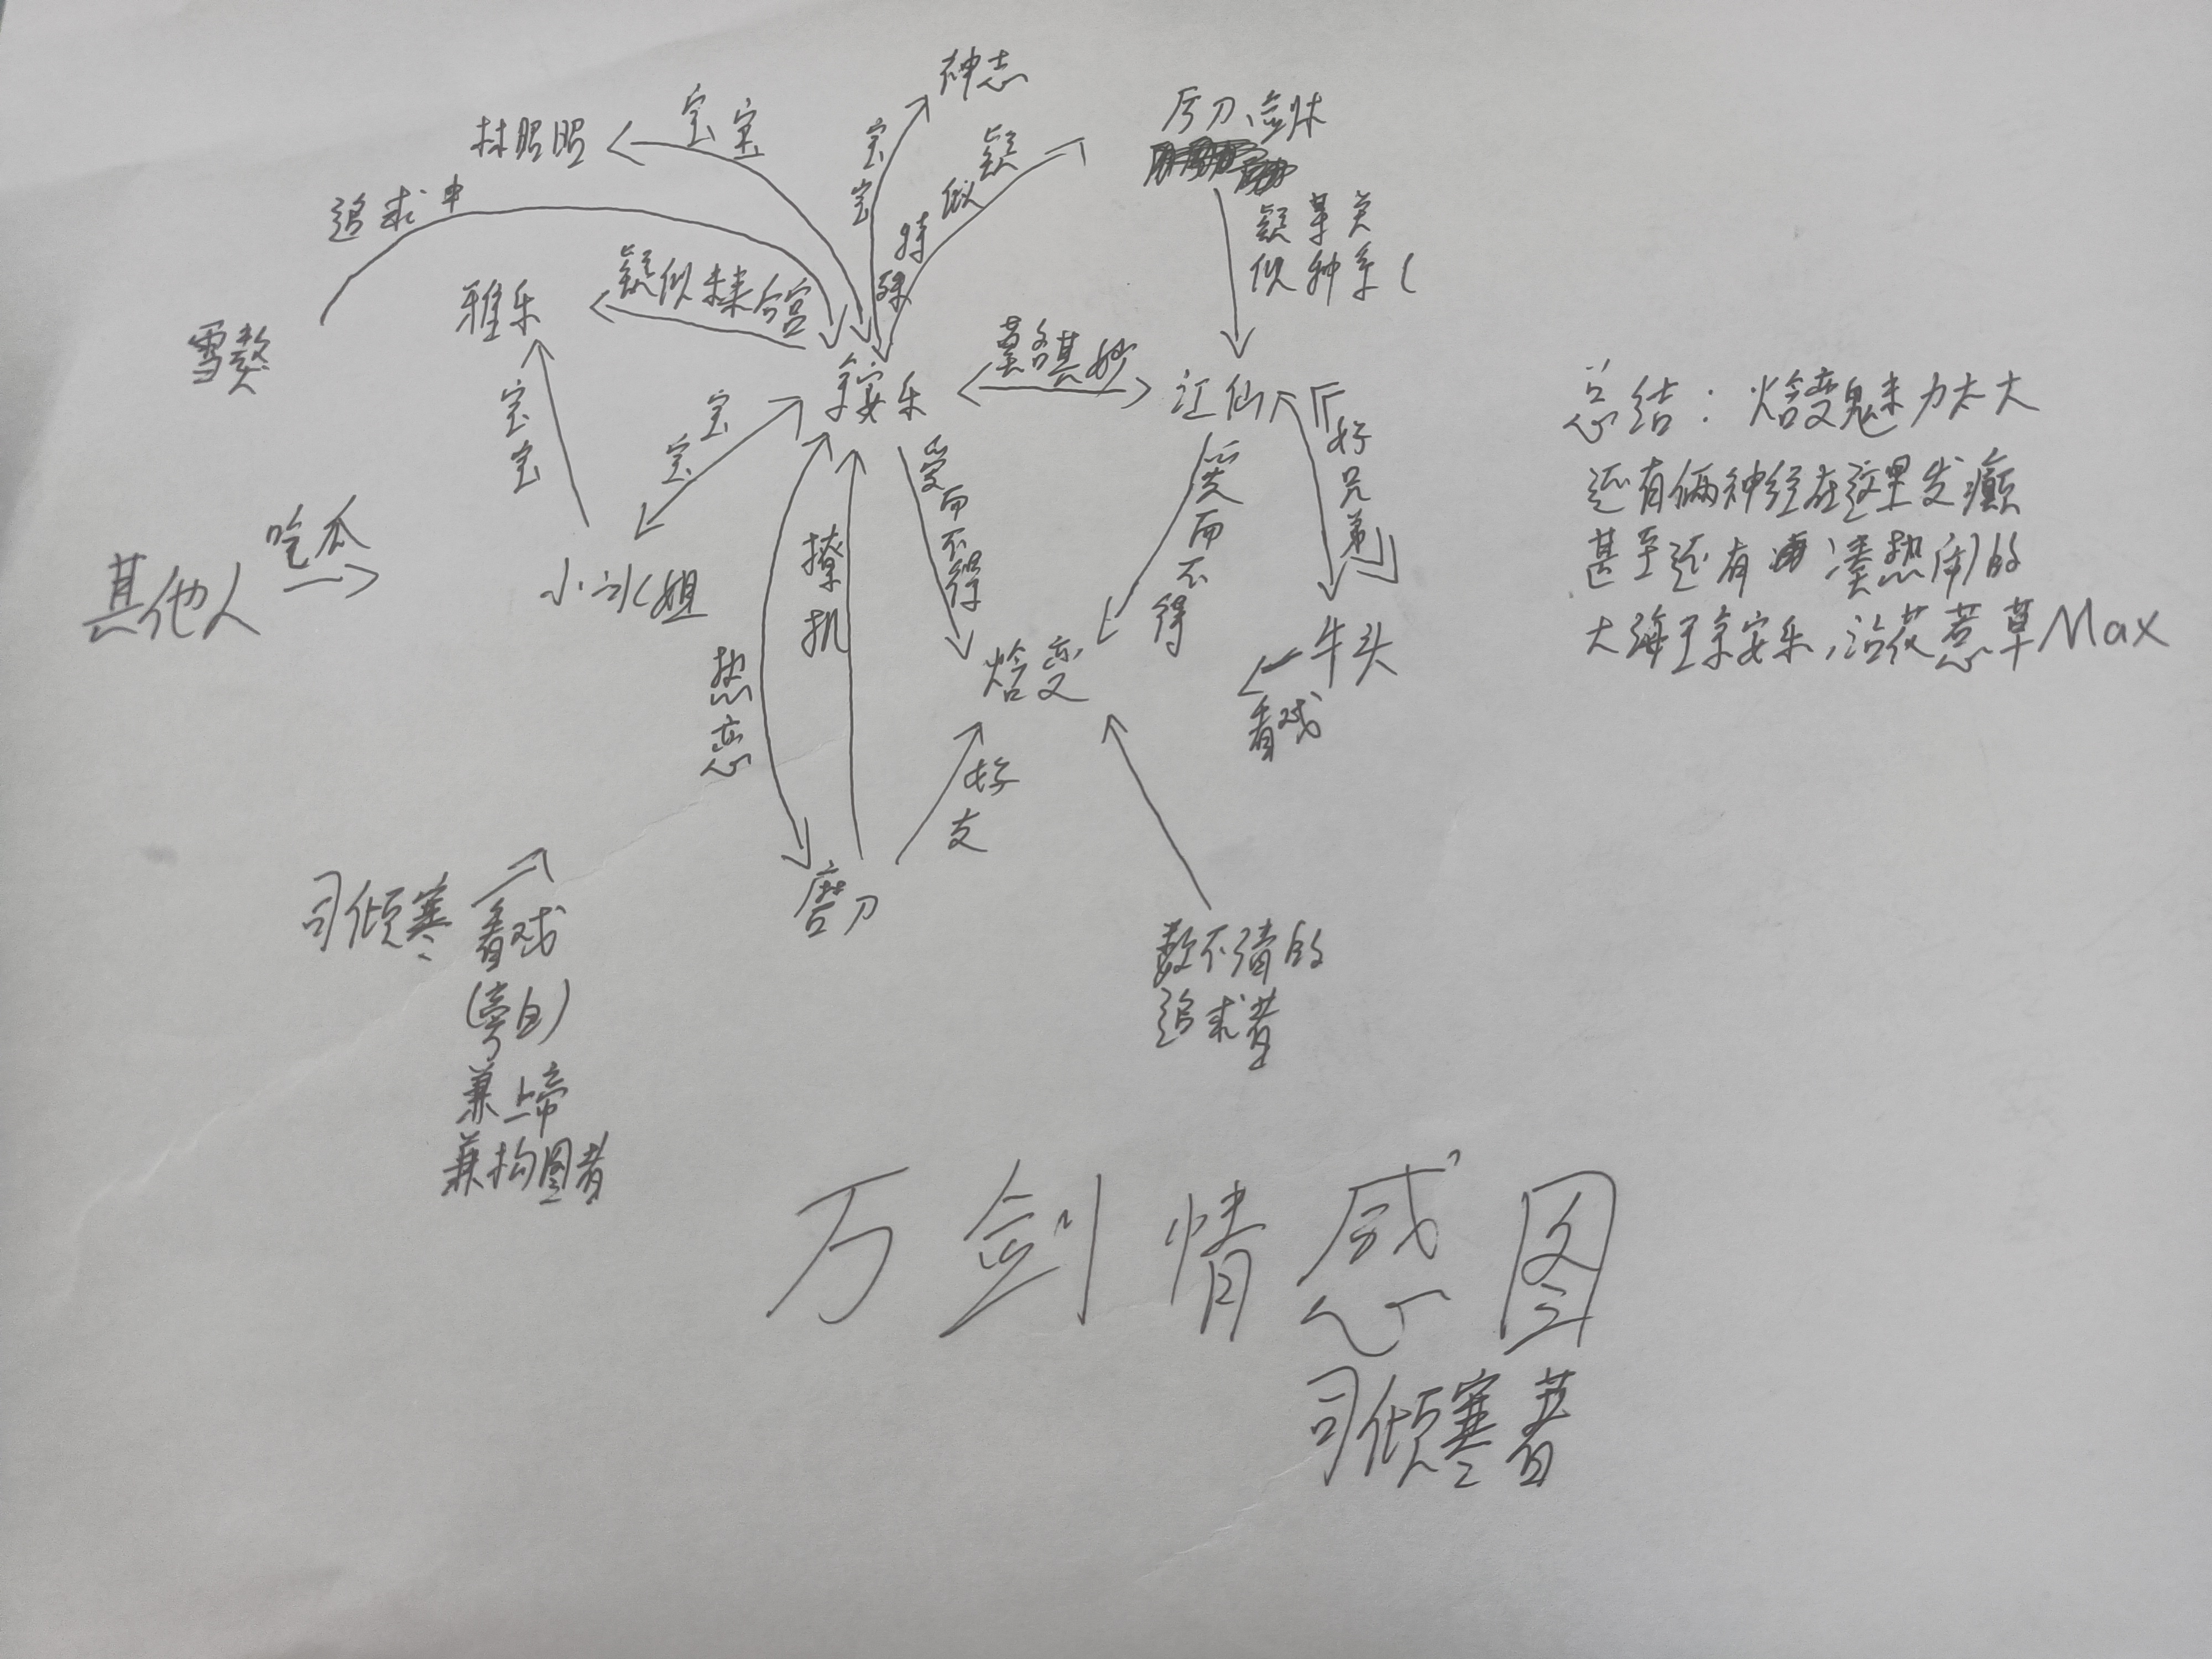 神志
宝宝
林昭昭
宝宝
疑似
特殊
追求中
疑似
某种
关系（
雅乐
疑似
雪
宝宝
宝宝
安乐
莫名其妙
江仙
好兄弟
爱而不得
爱而不得
撩
热恋
小冰姐
其他人
吃瓜
变
牛头
看戏
好友
磨刀
数不清的
追求者
司倾寒
看戏
(旁白)
兼上帝
兼构图者
总结：变魅力太大
还有俩神经在这里发癫
甚至还有凑热闹的
大海王安乐，沾花惹草Max
万剑情感图
司倾寒著